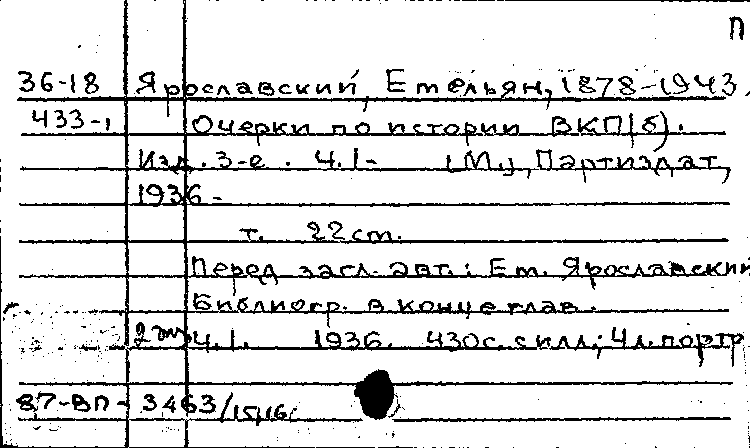 П
36-18 Ярославский, Емельян, 1878-1943.
433-1 Очерки по истории ВКП(б).
Изд. 3-е. Ч.1- [М.], Партиздат,
1936-
т. 22 cm.
Перед загл. авт.: Ем. Ярославский
Библиогр. в конце глав.
Ч.1. 1936. 430с. с илл; 4 л. портр
87-ВП-3463/15,16.